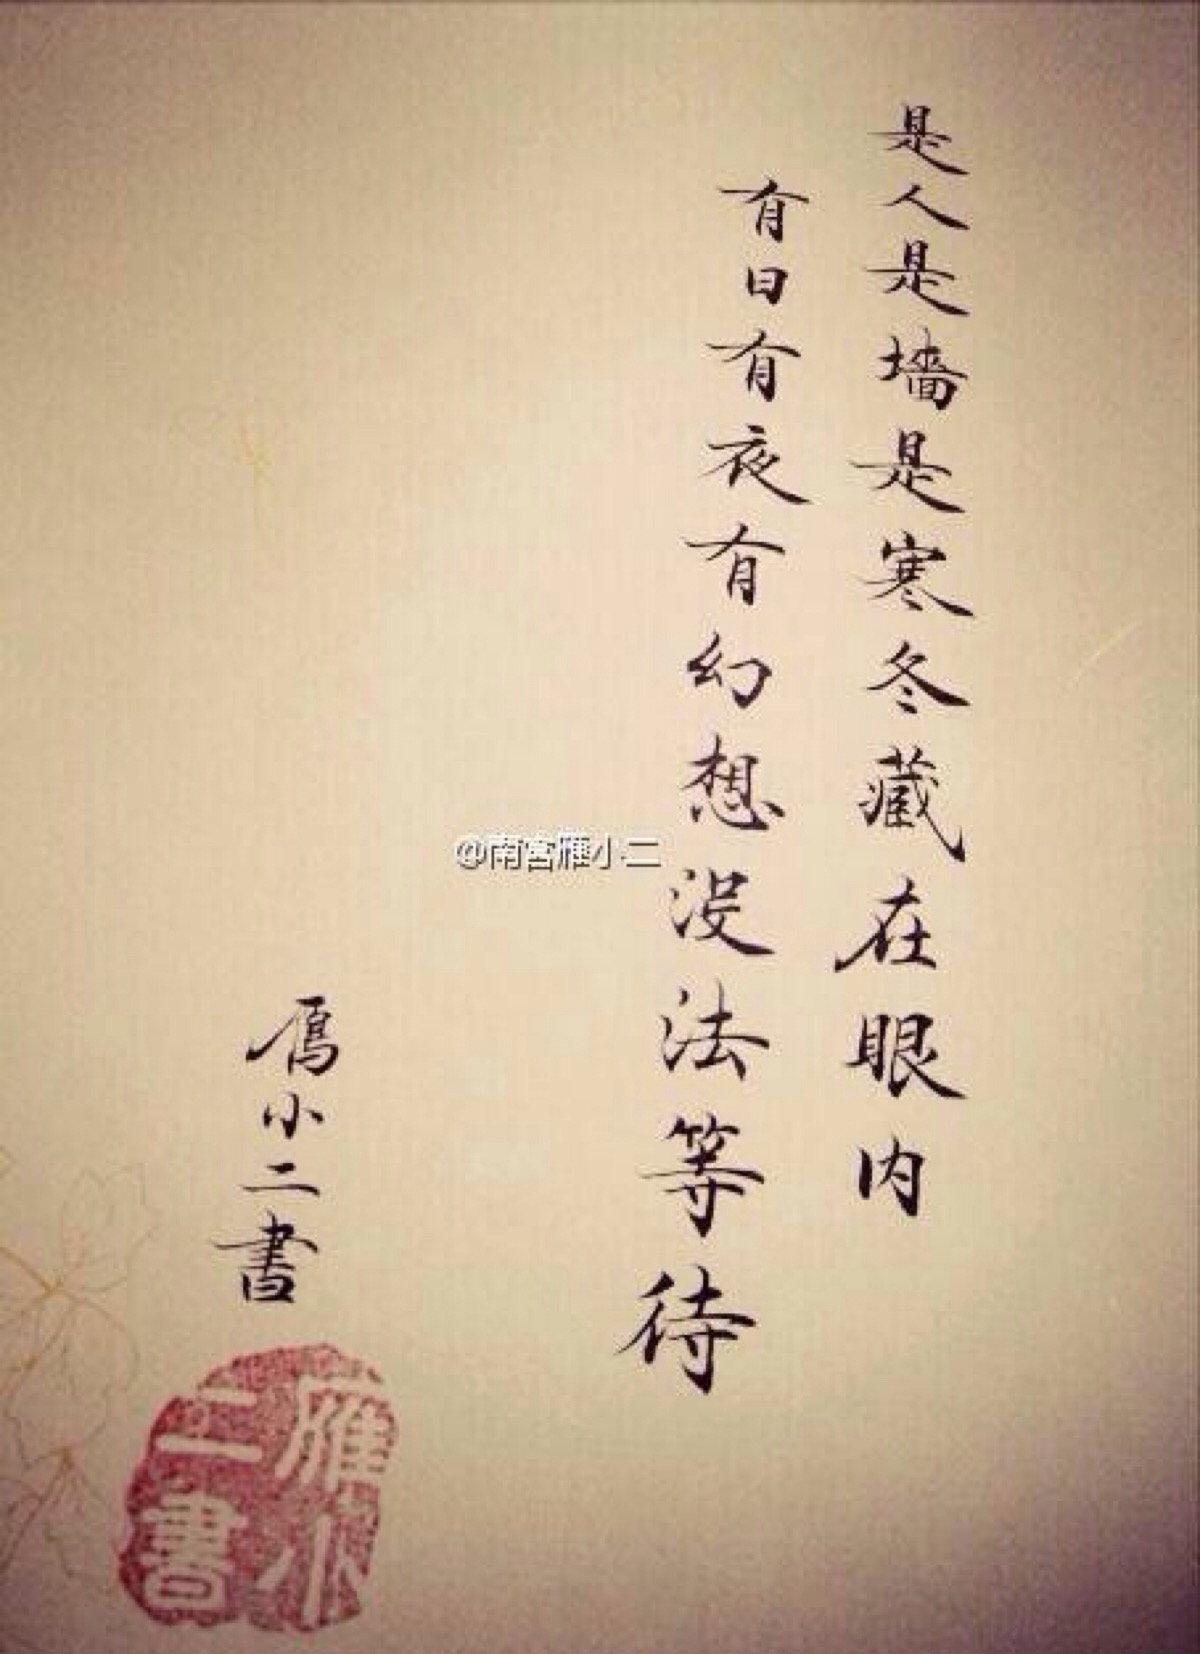 是人是墙是寒冬藏在眼内
有日有夜有幻想没法等待
雁小二書
@南宫雁小二
雁小
二書